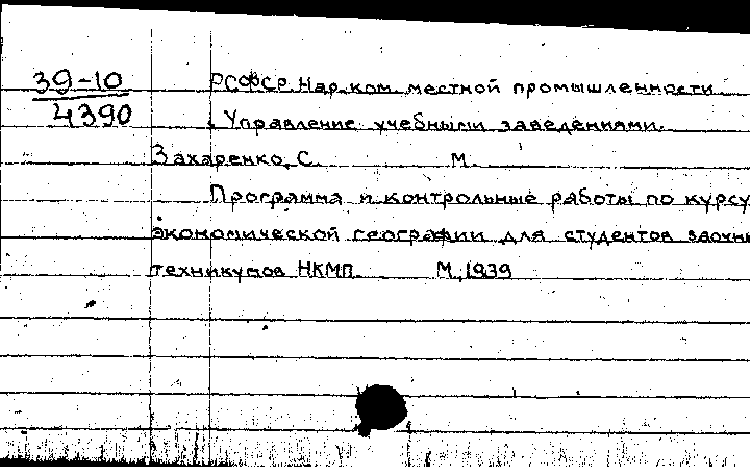 39-10
4390
РСФСР. Нар. ком. местной промышленности
. Управление учебными заведениями.
Захаренко, С. М.
Программа и контрольные работы по курсу
экономической географии для студентов заочн
техникумов НКМП М., 1939